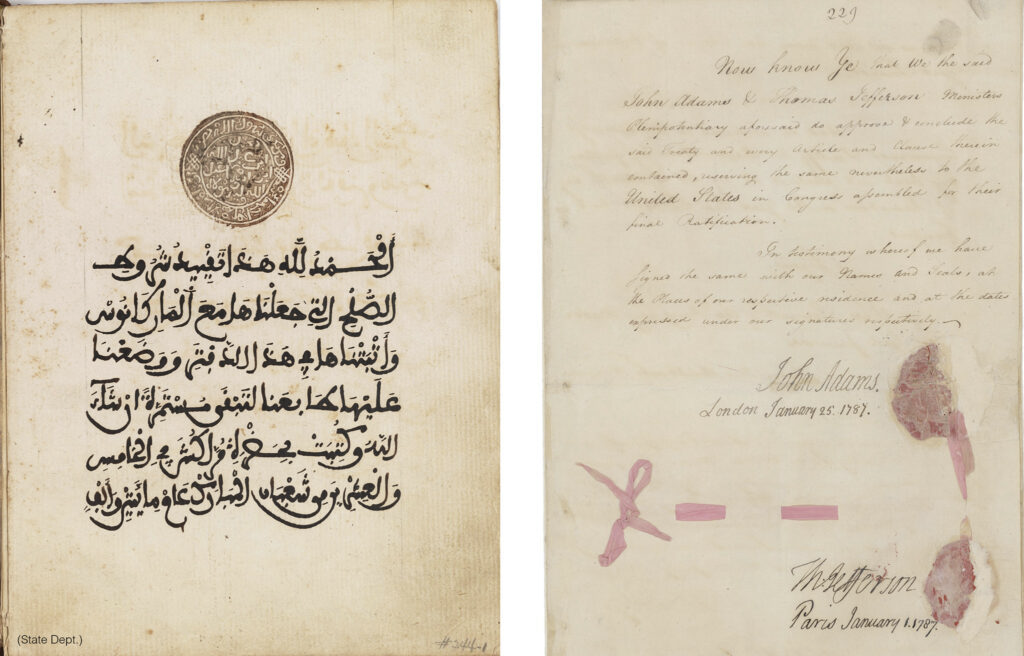 الحمد لله هذا تقييد شروط
الصلح التي جعلناها مع الماركانوس
وأثبتناها في هذا الدفتر ووضعنا
عليها طابعنا لتبقى مستمرة إن شاء
الله وكتبت بحضرة مراكش في الخامس
والعشرين شعبان المبارك عام مائتين وألف
(State Dept.)
#244-1
229
Now know Ye that We the said
John Adams & Thomas Jefferson Ministers
Plenipotentiary aforesaid do approve & conclude the
said Treaty and every Article and Clause therein
contained, reserving the same nevertheless to the
United States in Congress assembled for their
final Ratification.
In testimony whereof we have
signed the same with our Names and Seals, at
the Places of our respective residence and at the dates
expressed under our signatures respectively.
John Adams.
London January 25. 1787.
Th: Jefferson
Paris January 1. 1787.